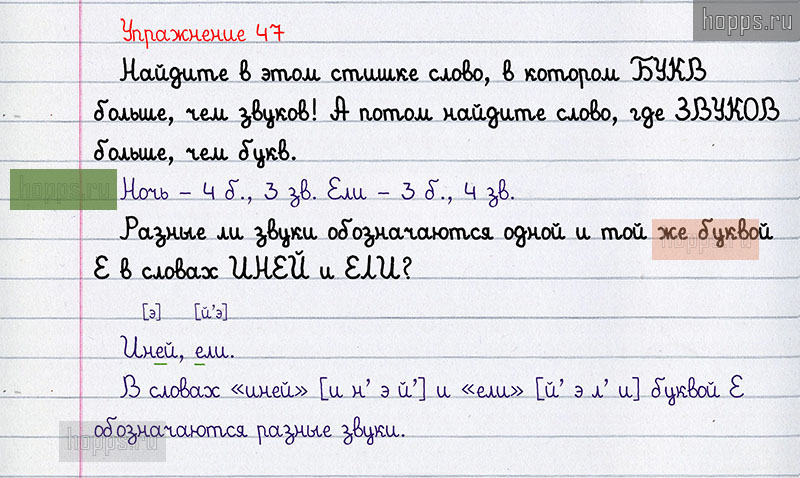 hopps.ru
Упражнение 47
Найдите в этом стишке слово, в котором БУКВ
больше, чем звуков! А потом найдите слово, где ЗВУКОВ
больше, чем букв.
hopps.ru
Ночь – 4 б., 3 зв. Ели – 3 б., 4 зв.
Разные ли звуки обозначаются одной и той же буквой
hopps.ru
Е в словах ИНЕЙ и ЕЛИ?
[э] [й’э]
Иней, ели.
В словах «иней» [и н’ э й’] и «ели» [й’ э л’ и] буквой Е
обозначаются разные звуки.
hopps.ru